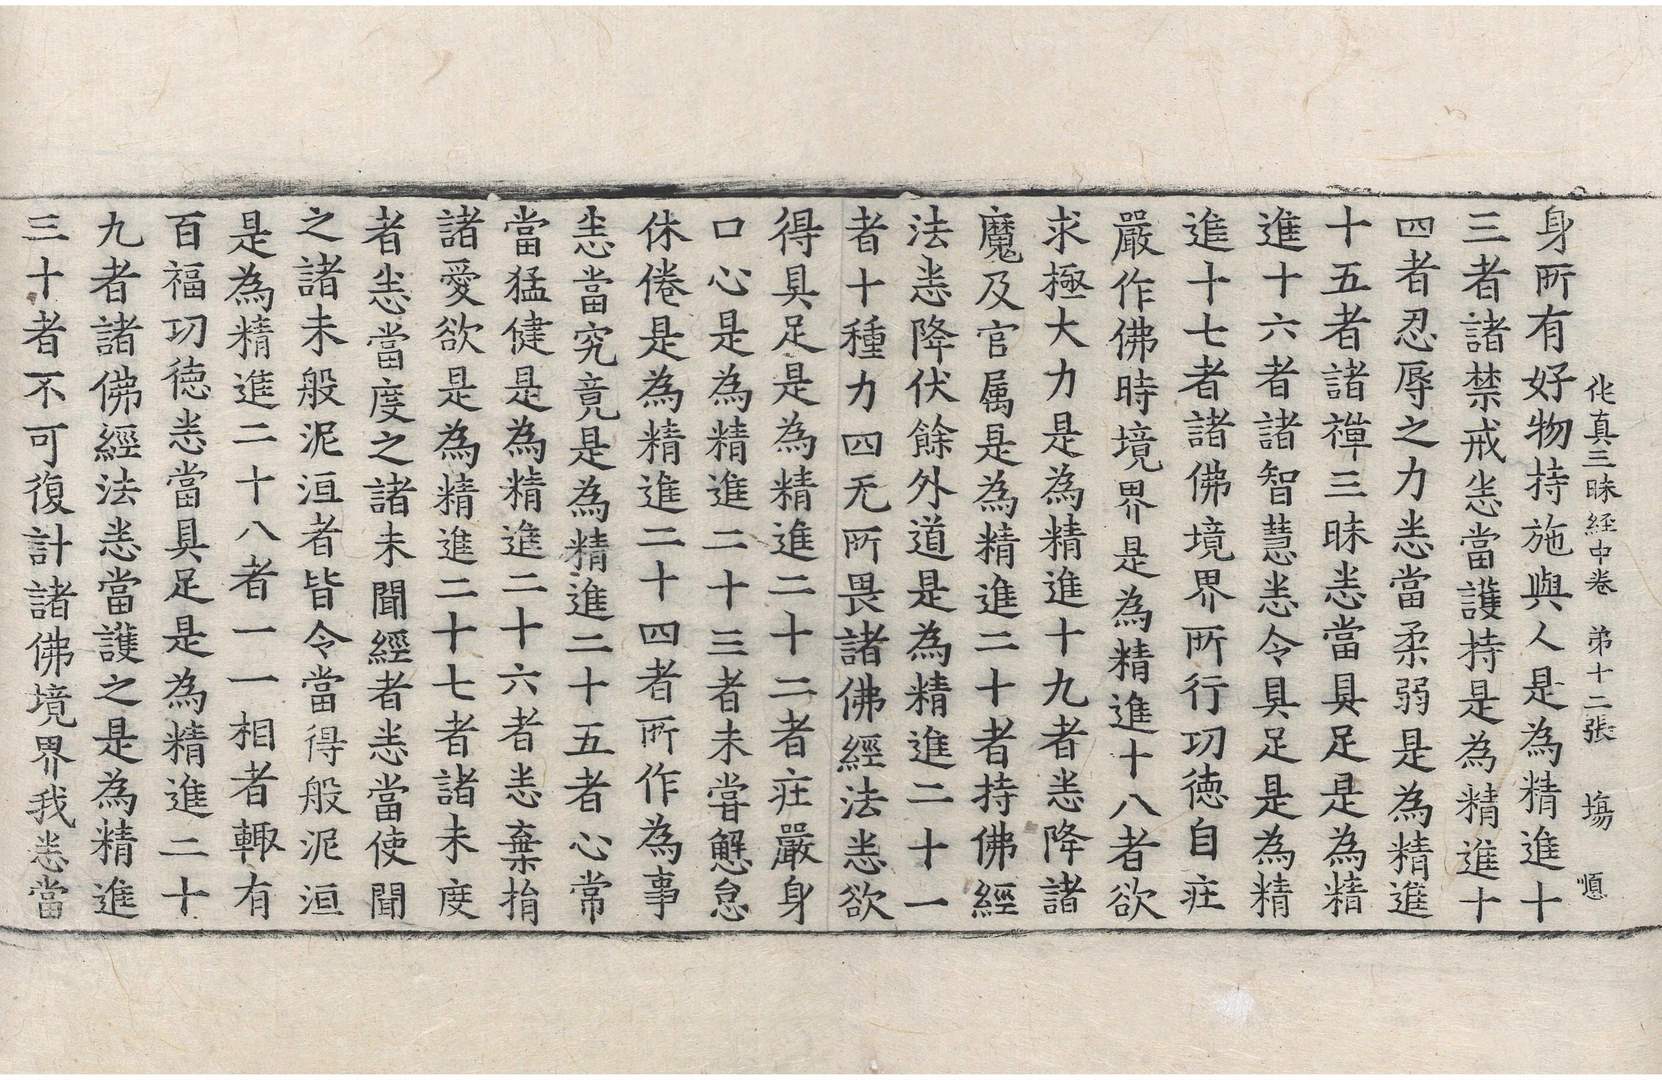 伅真三昧経中卷　苐十二張　塲　㥧
身所有好物持施與人是為精進十
三者諸禁戒㤪當護持是為精進十
四者忍辱之力㤪當柔弱是為精進
十五者諸禪三昧㤪當具足是為精
進十六者諸智慧㤪令具足是為精
進十七者諸佛境界所行功徳自㽵
嚴作佛時境界是為精進十八者欲
求極大力是為精進十九者㤪降諸
魔及官属是為精進二十者持佛經
法㤪降伏餘外道是為精進二十一
者十種力四无所畏諸佛經法㤪欲
得具足是為精進二十二者㽵嚴身
口心是為精進二十三者未甞懈怠
休倦是為精進二十四者所作為事
㤪當究竟是為精進二十五者心常
當猛健是為精進二十六者㤪棄捐
諸愛欲是為精進二十七者諸未度
者㤪當度之諸未聞經者㤪當使聞
之諸未般泥洹者皆令當得般泥洹
是為精進二十八者一一相者輙有
百福功徳㤪當具足是為精進二十
九者諸佛經法㤪當護之是為精進
三十者不可復計諸佛境界我㤪當